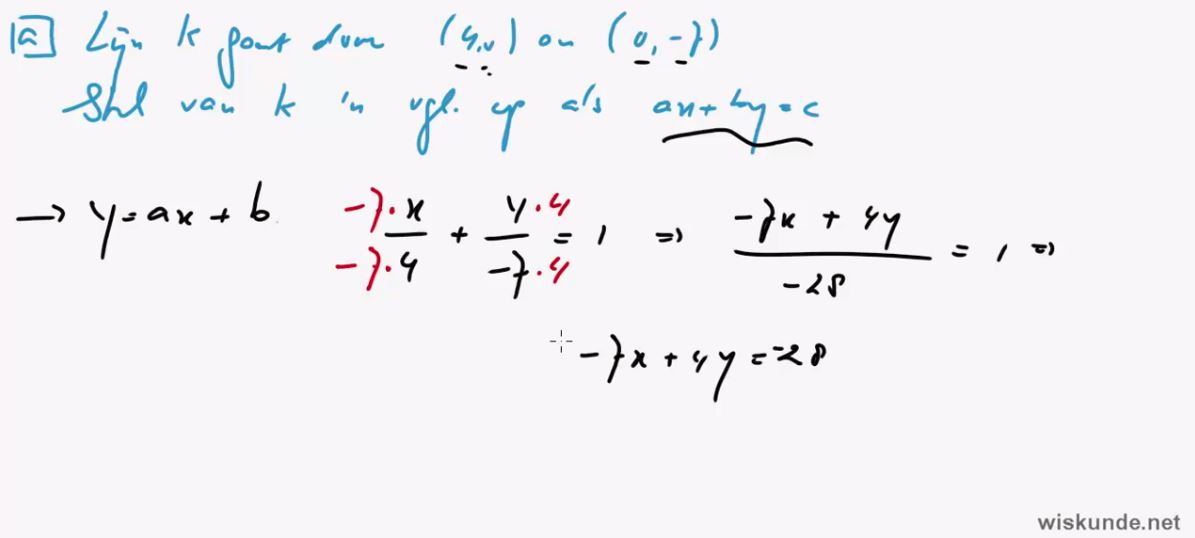 a Lijn k gaat door (4,0) en (0,-7)
Stel van k 'n vgl. op als ax+by=c
→ y=ax+b -7·x/-7·4 + y·4/-7·4 = 1 ⇒ -7x + 4y/-28 = 1 ⇒
-7x+4y=-28
wiskunde.net